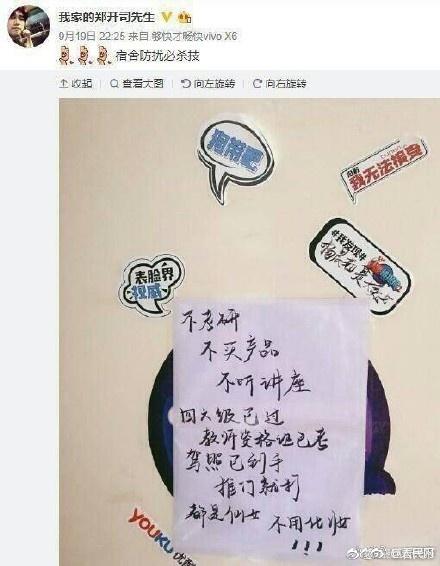 我家的郑开司先生
9月19日 22:25 来自 够快才畅快vivo X6
宿舍防扰必杀技
收起 查看大图 向左旋转 向右旋转
抱带吧
我无法接受
#我发现#
表脸界
权威
不考研
不买产品
不听讲座
四六级已过
教师资格证已考
驾照已到手
推门就打
都是仙女 不用化妆
!!!
YOUKU优酷